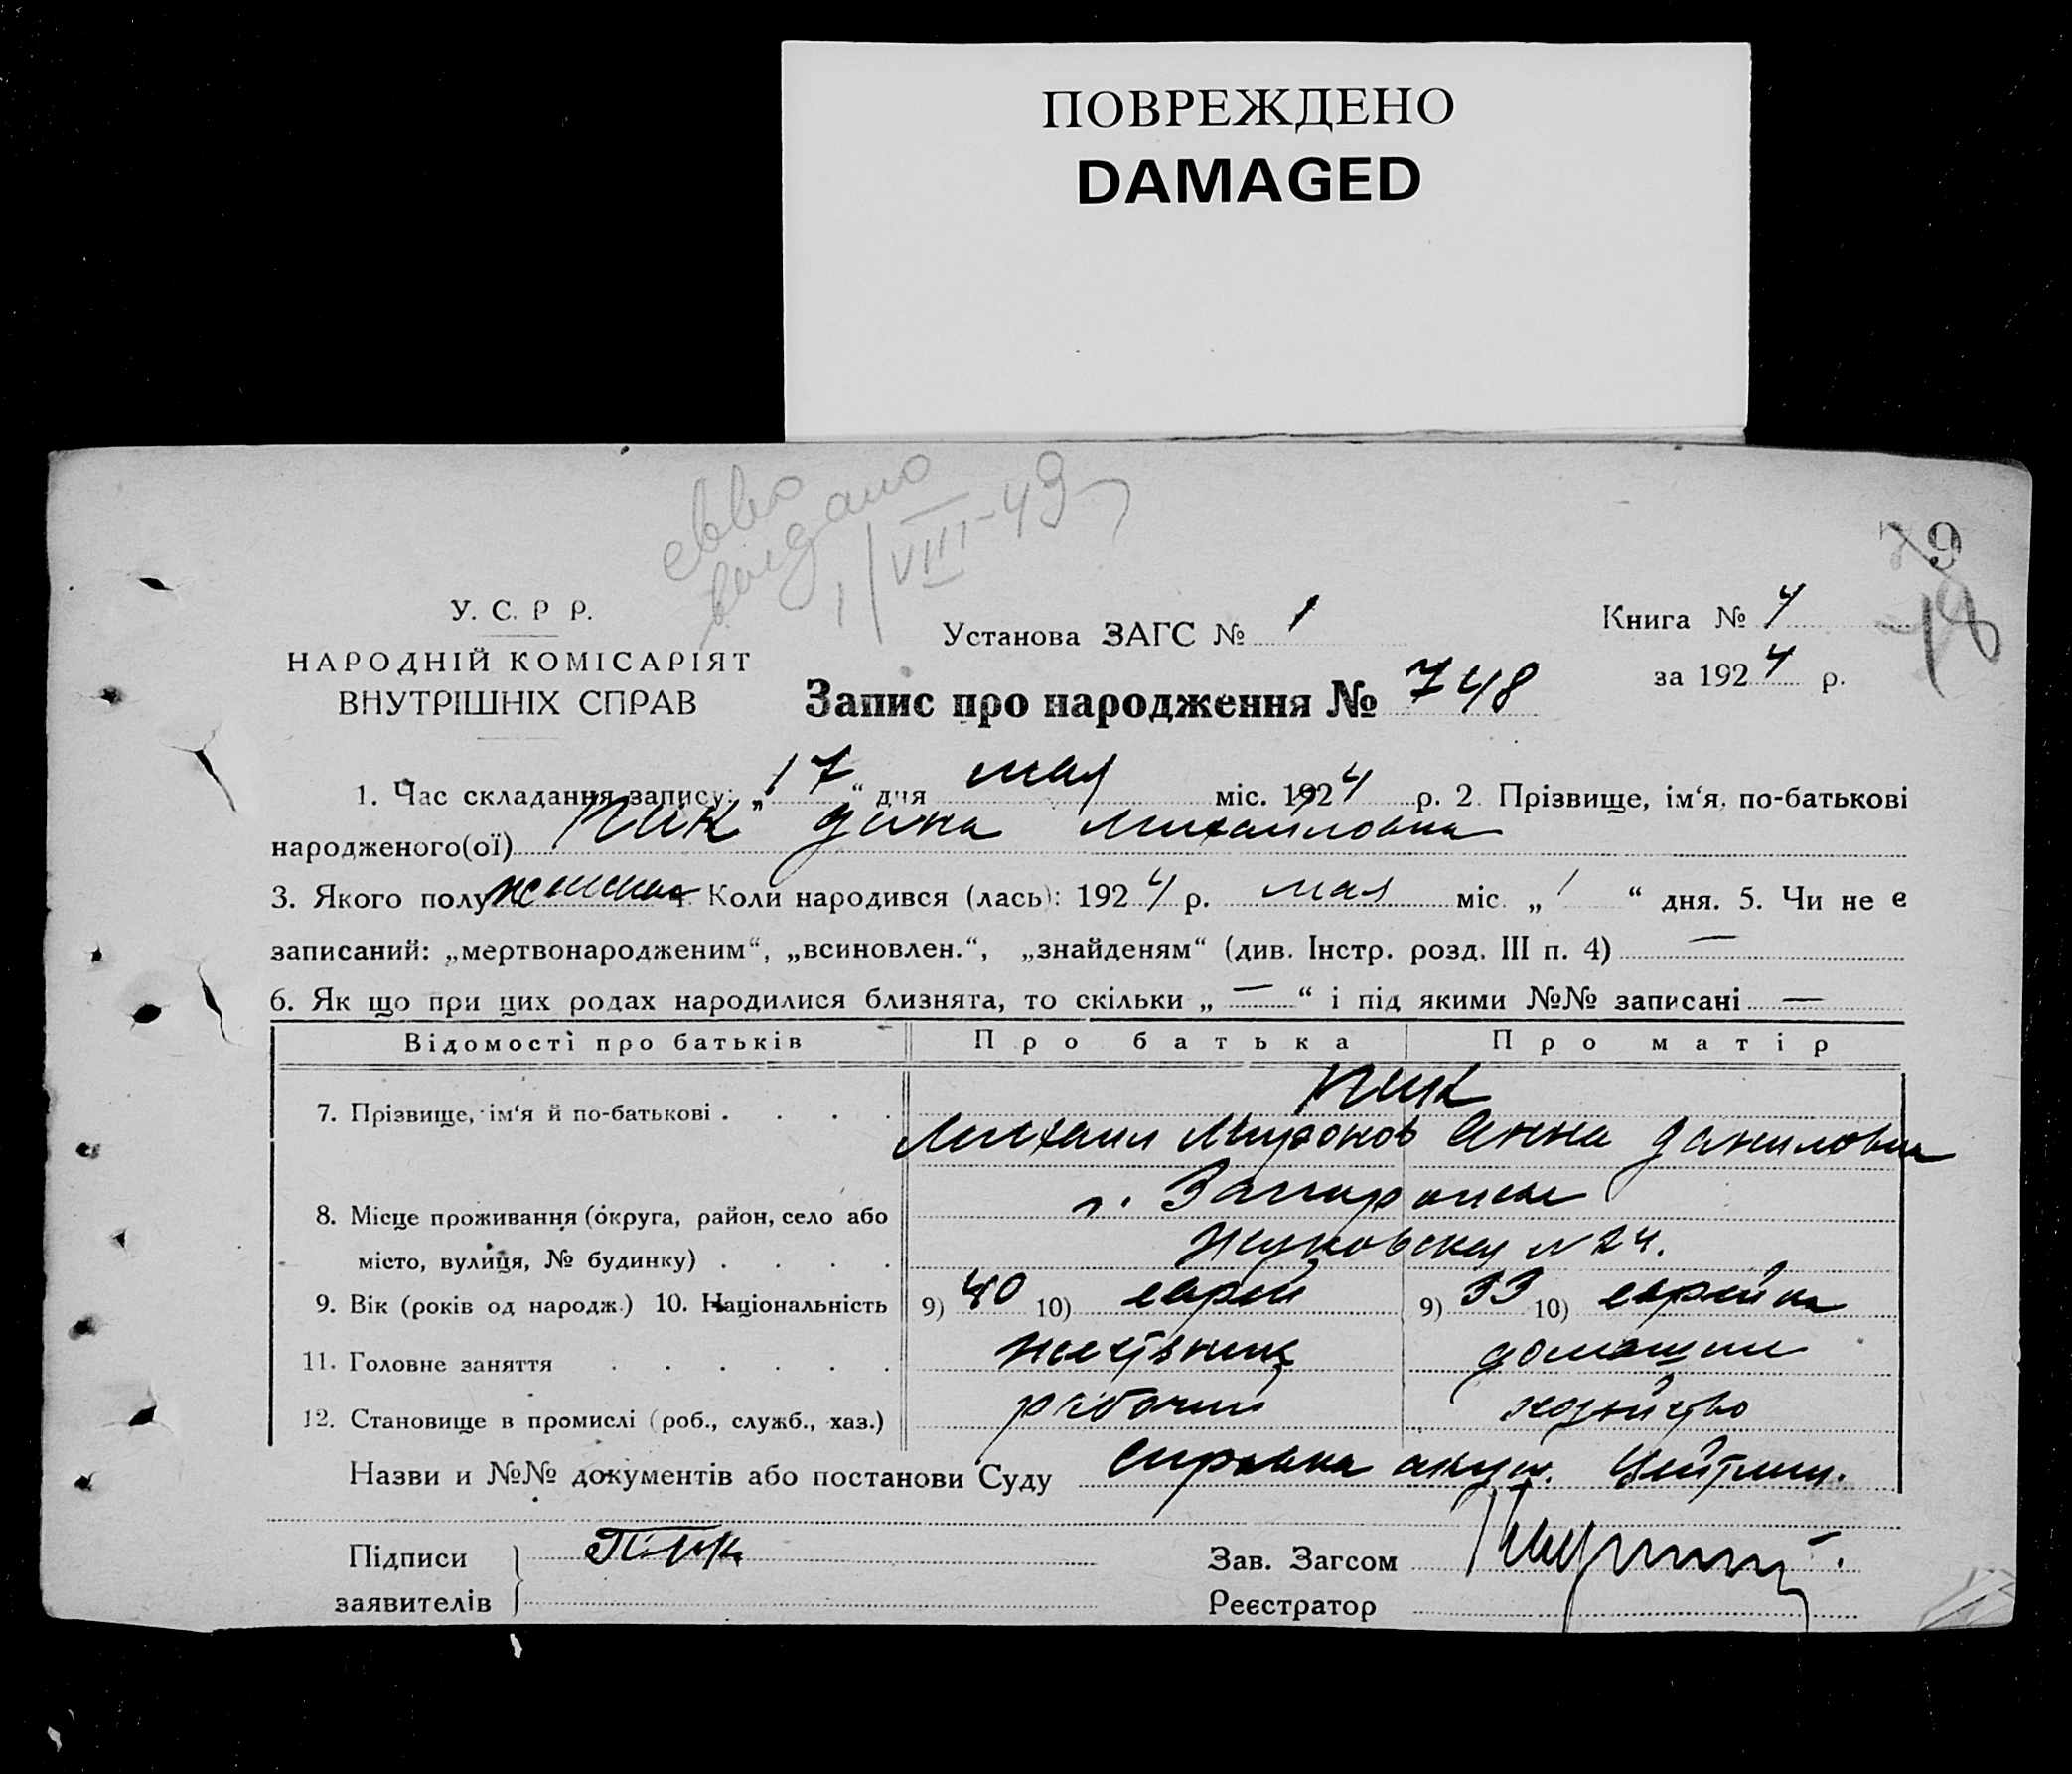 ПОВРЕЖДЕНО
DAMAGED
выдано
1/VIII-49
79
78
У. С. Р Р.
НАРОДНІЙ КОМІСАРІЯТ
ВНУТРІШНІХ СПРАВ
Установа ЗАГС № 1
Книга № 4
за 1924 р.
Запис про народження № 748
1. Час складання запису: „17“ дня мая міс. 1924 р. 2. Прізвище, ім‘я, по-батькові
народженого(ої) Пик Дина Михайловна
3. Якого полу женска 4. Коли народився (лась): 1924 р. мая міс. „1“ дня. 5. Чи не є
записаний: „мертвонародженим“, „всиновлен.“, „знайденям“ (див. Інстр. розд. III п. 4) —
6. Як що при цих родах народилися близнята, то скільки „ — “ і під якими №№ записані —
Відомості про батьків Про батька Про матір
7. Прізвище, ім‘я й по-батькові . . . . Пик
Михаил Миронов Анна Даниловна
8. Місце проживання (округа, район, село або г. Запорожье
місто, вулиця, № будинку) . . . . Жуковская № 24.
9. Вік (років од народж.) 10. Національність 9) 40 10) еврей 9) 33 10) еврейка
11. Головне заняття . . . . . жестяник домашнее
12. Становище в промислі (роб., служб., хаз.) рабочий хозяйство
Назви и №№ документів або постанови Суду справка акуш. Цейтлин.
Підписи Пик Зав. Загсом
заявителів Реєстратор